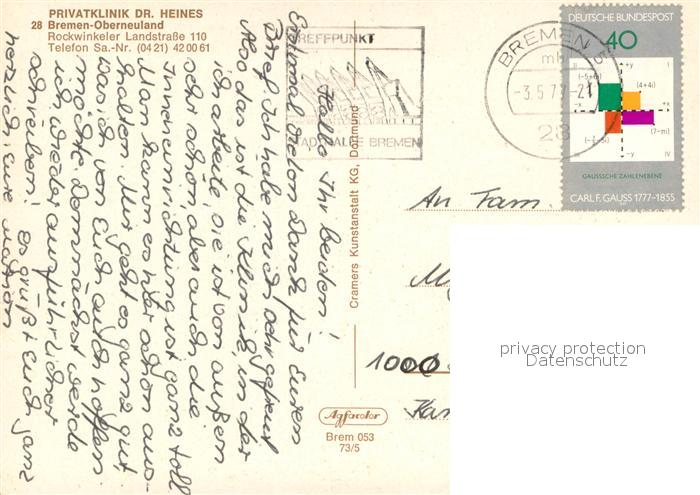 PRIVATKLINIK DR. HEINES
28 Bremen-Oberneuland
Rockwinkeler Landstraße 110
Telefon Sa.-Nr. (04 21) 42 00 61
Hallo Ihr beiden!
Erstmal vielen Dank für Euren
Brief. Ich habe mich sehr gefreut
Also das ist die Klinik, in der
ich arbeite, sie ist von außen
sehr schön, aber auch die
Inneneinrichtung ist ganz toll
Man kann es hier schon aus-
halten. Mir geht es ganz gut,
was ich von Euch auch hoffen
möchte. Demnächst werde
ich wieder ausführlicher
schreiben! Es grüßt Euch ganz
herzlich, Eure
Cramers Kunstanstalt KG, Dortmund
Agfacolor
Brem 053
73/5
TREFFPUNKT
STADTHALLE BREMEN
BREMEN
-3.5.77-21
28
DEUTSCHE BUNDESPOST
40
II
+y
I
(-5+6i)
(4+4i)
-x
+x
(7-mi)
III
-y
IV
GAUSSSCHE ZAHLENEBENE
CARL F. GAUSS 1777-1855
An Fam.
1000
privacy protection
Datenschutz